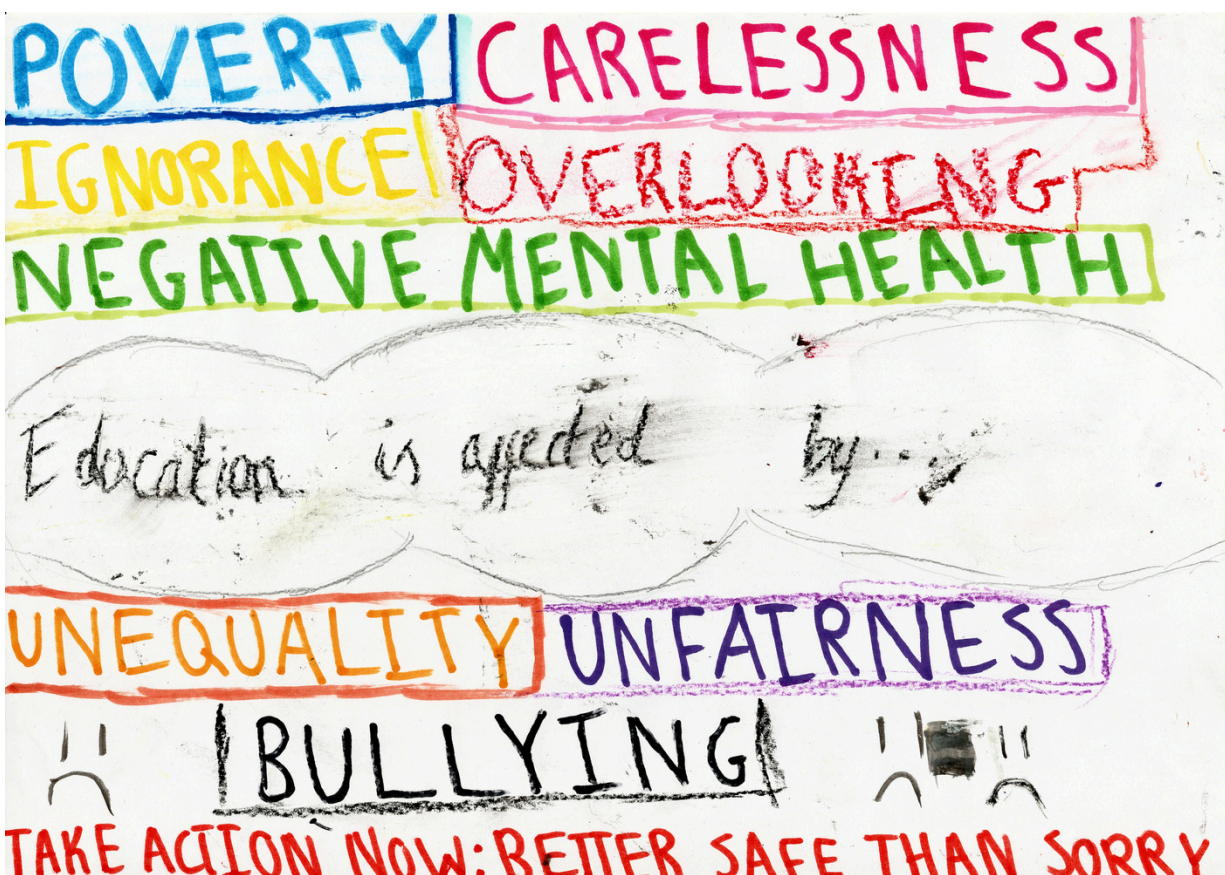 POVERTY CARELESSNESS
IGNORANCE OVERLOOKING
NEGATIVE MENTAL HEALTH
Education is affected by...
UNEQUALITY UNFAIRNESS
BULLYING
TAKE ACTION NOW: BETTER SAFE THAN SORRY